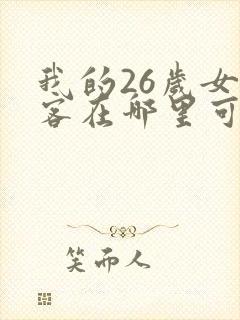 我的26歲女
客在哪里可
笑而人